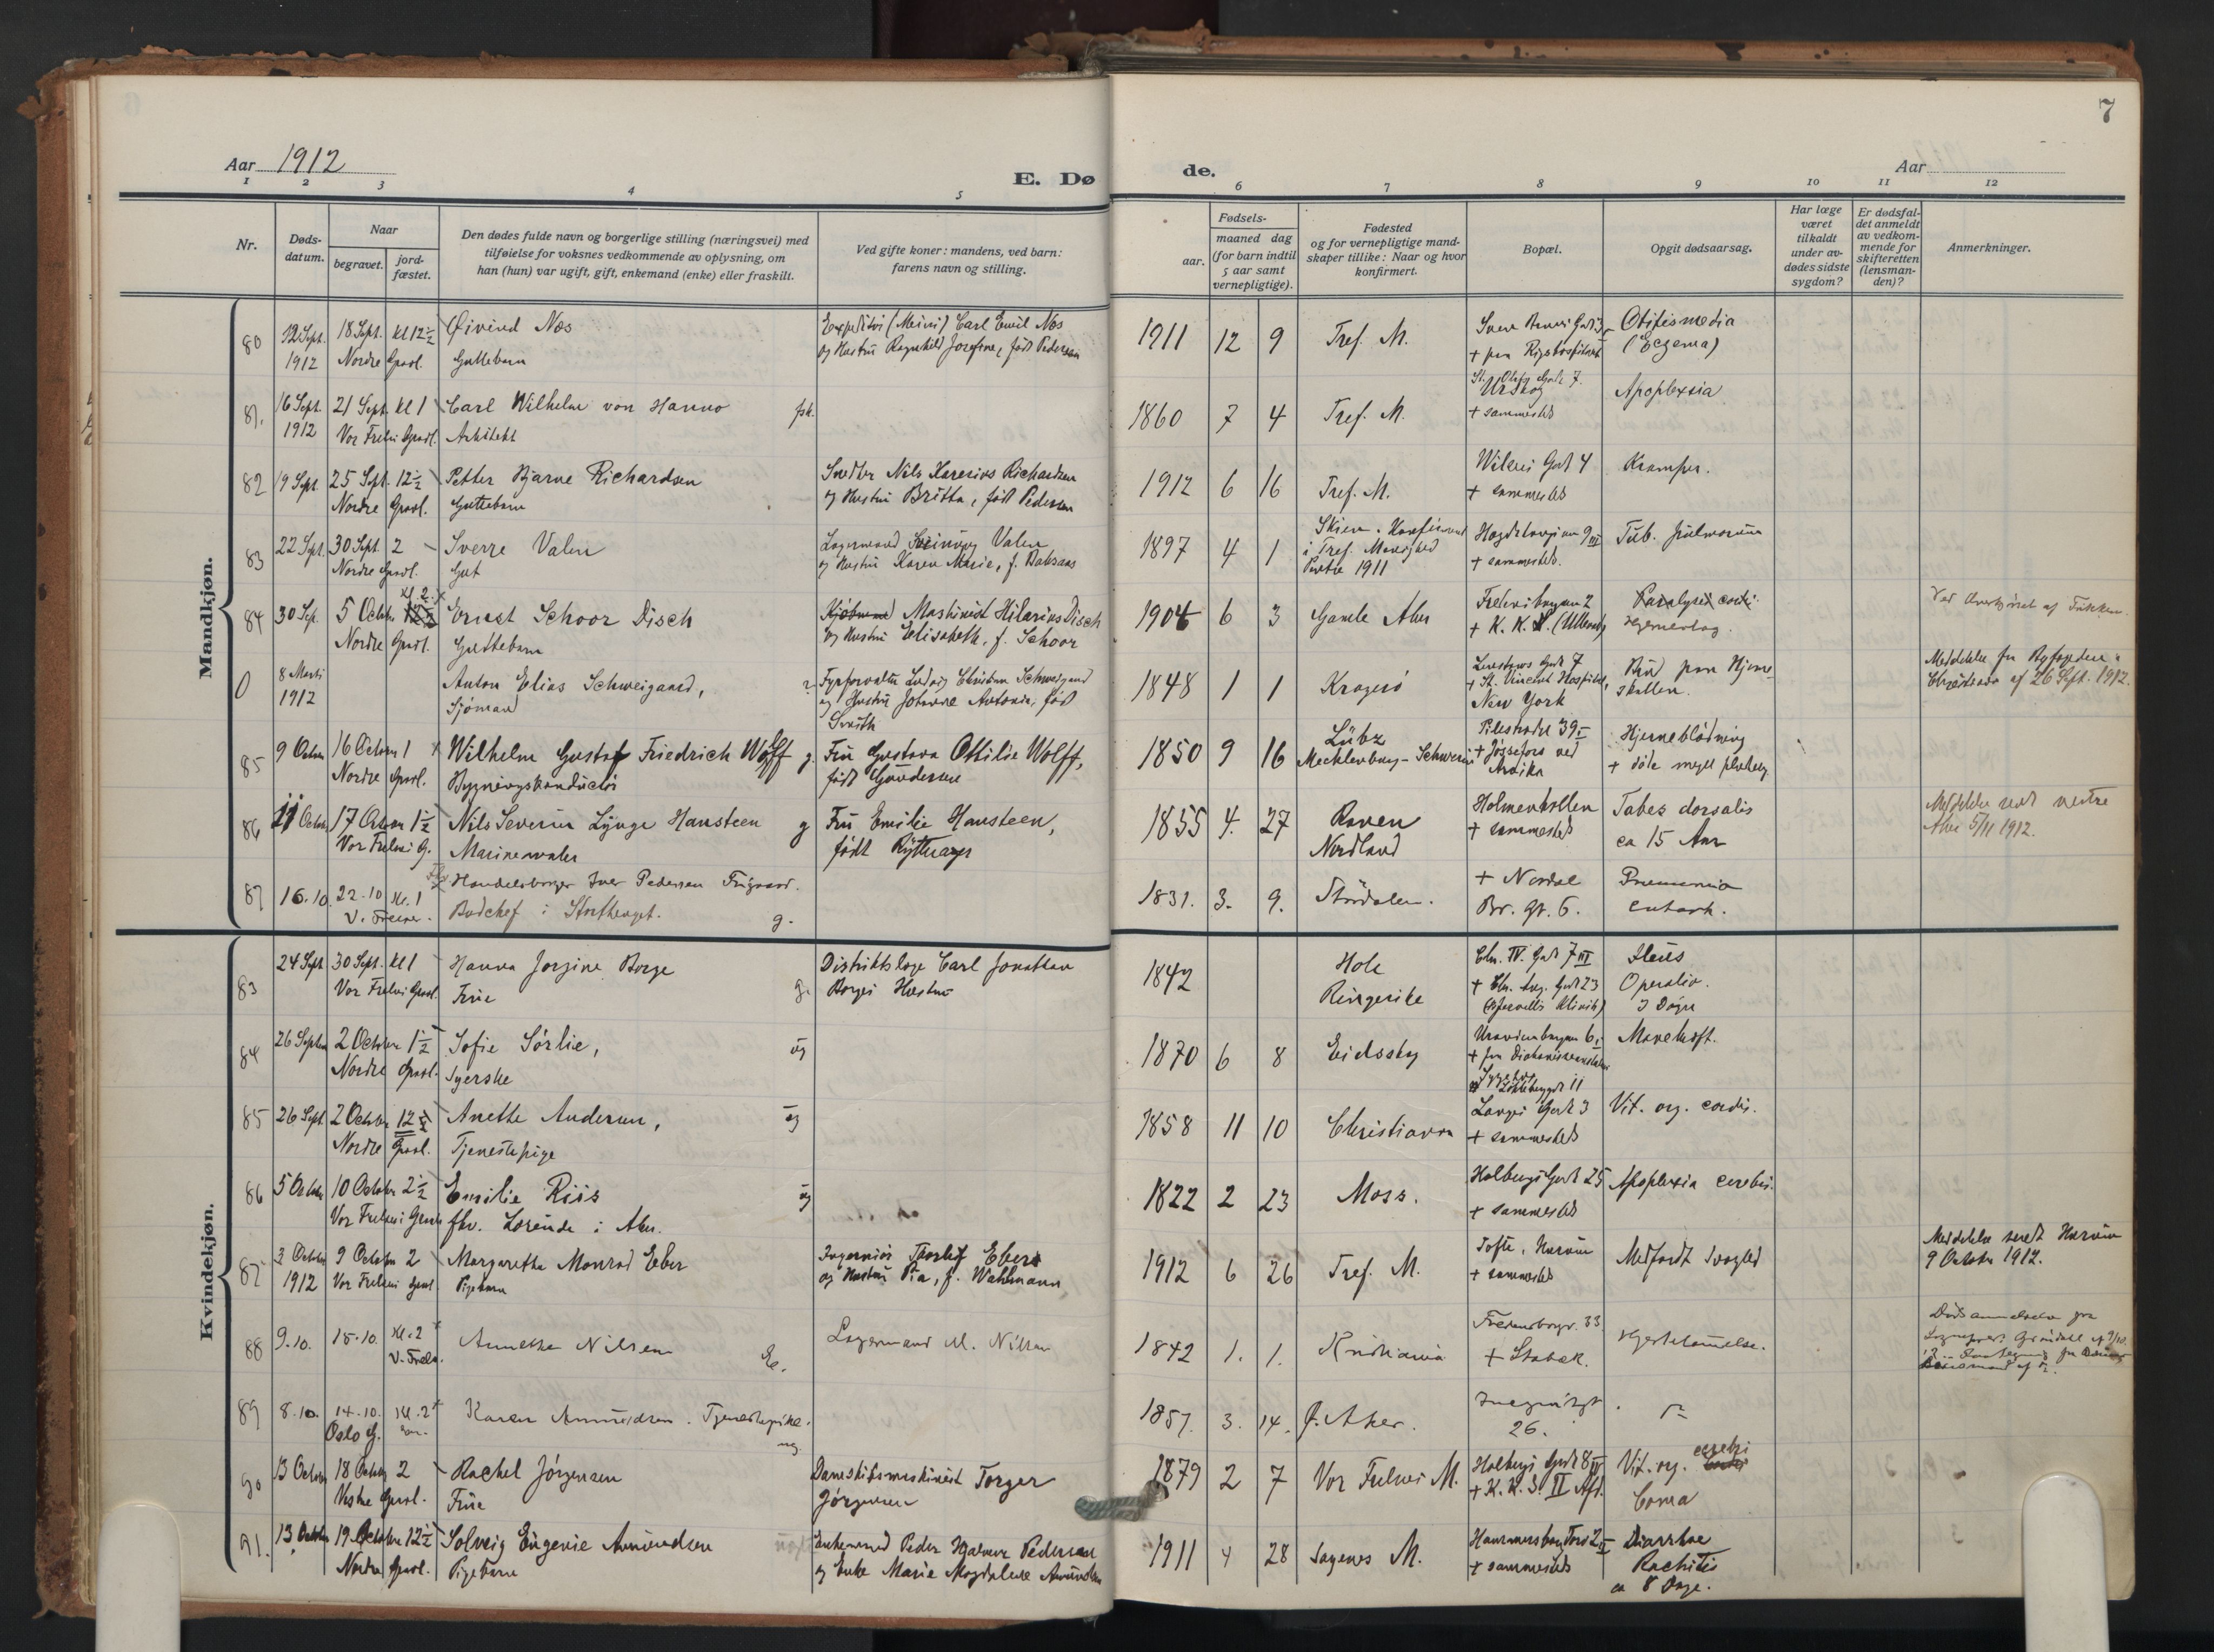 7
Aar 1912
E. Døde.
Aar
1 2 3 4 5 6 7 8 9 10 11 12
Nr.
Døds-
datum.
Naar
begravet.
jord-
fæstet.
Den dødes fulde navn og borgerlige stilling (næringsvei) med
tilføielse for voksnes vedkommende av oplysning, om
han (hun) var ugift, gift, enkemand (enke) eller fraskilt.
Ved gifte koner: mandens, ved barn:
farens navn og stilling.
Fødsels-
aar.
maaned dag
(for barn indtil
5 aar samt
vernepligtige).
Fødested
og for vernepligtige mand-
skaper tillike: Naar og hvor
konfirmert.
Bopæl.
Opgit dødsaarsag.
Har læge
været
tilkaldt
under av-
dødes sidste
sygdom?
Er dødsfal-
det anmeldt
av vedkom-
mende for
skifteretten
(lensman-
den)?
Anmerkninger.
Mandkjøn.
80 12 Sept. 18 Sept. Kl 12½ Øivind Næs
1912 Nordre Gravl. Guttebarn
Carl Emil Næs
og Hustru Ragnhild Josefine, født Pedersen
1911 12 9 Tref. M.
+ paa Rigshospitalet
Otitis media
(Eczema)
81. 16 Sept. 21 Sept. Kl 1 Carl Wilhelm von Hanno fsk.
1912 Vor Frelsers Gravl. Arkitekt
1860 7 4 Tref. M.
St. Olafs Gade 7.
Urskog
+ sammesteds
Apoplexia
82 19 Sept. 25 Sept. 12½ Petter Bjarne Richardsen
Nordre Gravl. Guttebarn
Snedker Nils Richardsen
og Hustru Britta, født Pedersen
1912 6 16 Tref. M.
Wilses Gade 4
+ sammesteds
Kramper.
83 22 Sept. 30 Sept. 2 Sverre Valen
Nordre Gravl. Gut
Lagermand Valen
og Hustru Karen Marie, f.
1897 4 1 Skien. Konfirmeret
i Tref. Menighed
1911
+ sammesteds.
Tub. pulmonum
84 30 Sep. 5 Octbr Kl 2. Ernest Schoor Disch
Nordre Gravl. Guttebarn
Maskinist Hilarius Disch
og Hustru Elisabeth, f. Schoor
1904 6 3 Gamle Aker
Fredensborgveien 2
+ K. K. S. (Ullevaal)
Paralysis cordis
0 8 Marts
1912
Anton Elias Schweigaard,
Sjømand
Ludvig Christian Schweigaard
og Hustru Johanne Antonia, født
Smith
1848 1 1 Kragerø
+ St. Vincent Hospital,
New York
Brud paa Hjerne-
skallen.
Meddelelse fra Byfogden i
Christiania af 26 Sept. 1912.
85 9 Octbr 16 Octbr 1 Wilhelm Gustaf Friedrich Wolff g.
Nordre Gravl. Bygningskonduktør
Fru Gustava Ottilie Wolff,
født Gundersen
1850 9 16 Lübz
Mecklenburg-Schwerin
Pilestrædet 39 I
+ Jössefors ved
Arvika
Hjerneblødning
+ døde meget pludselig
86 11 Octbr 17 Octbr 1½ Nils Severin Lynge Hansteen g
Vor Frelsers G. Marinemaler
Fru Emilie Hansteen,
født Ryttenager
1855 4. 27 Ranen
Nordland
Holmenkollen
+ sammesteds
Tabes dorsalis
ca 15 Aar
Meddelelse sendt vestre
Aker 5/11 1912.
87 16.10. 22.10 Kl. 1 Handelsborger Iver Pedersen
V. Frelser. g.
1831. 3. 9. Stördalen.
+ Nordal
Br. gt. 6.
Pneumonia
catarrh.
Kvindekjøn.
83 24 Sept 30 Sept. Kl 1 Hanna Jorgine Borge g.
Vor Frelsers Gravl. Frue
Distriktslæge Carl Jonathan
Borges Hustru
1842 Hole
Ringerike
Chr. IV. Gade 7 III
+ Chr. Aug. Gade 23
Ileus
Operation.
3 Døgn
84 26 Septbr 2 Octbr 1½ Sofie Sørlie, ug
Nordre Gravl. Syerske
1870 6 8 Eidskog
Uranienborgveien 6,
Sygehus
Mavekræft.
85 26 Sept. 2 Octbr 12½ Anette Andersen, ug
Nordre Gravl. Tjenestepige
1858 11 10 Christiania
Langes Gade 3
+ sammesteds
Vit. org. cordis.
86 5 Octbr 10 Octbr 2½ Emilie Riis ug
Vor Frelsers Gravl. fhv. Lærerinde i Aker.
1822 2 23 Moss.
Holbergs Gade 25
+ sammesteds
Apoplexia cerebri.
87 3 Octbr 9 Octbr 2 Margaretha Monrad Eber
1912 Vor Frelsers Gravl. Pigebarn
Ingeniør Thorleif Eber
og Hustru Pia, f. Wahlmann
1912 6 26 Tref. M.
Tofte, Hurum
+ sammesteds
Medfødt Svaghed
Meddelelse sendt Hurum
9 Octobr 1912.
88 9.10. 15.10. Kl. 2 Annette Nilsen E.
V. Frels.
Lagermand M. Nilsen
1842 1. 1. Kristiania
Fredensborgv. 33
+ Stabæk.
Hjertelammelse.
89 8.10. 14.10. Kl. 2 Karen Amundsen. Tjenestepike.
Oslo G. ug.
1857. 3. 14. G. Aker.
26.
90 13 Octbr 18 Octbr 2 Rachel Jørgensen
Vestre Gravl. Frue
Dampskibsmaskinist Torger
Jørgensen
1879 2 7 Vor Frelsers M.
Holbergs Gade 8 IV
+ K. K. S. II Afd.
Vit. org. cerebri
Coma
91. 13 Octbr 19 Octbr 12½ Solveig Eugenie Amundsen
Nordre Gravl. Pigebarn
Enkemand Peder Hjalmar Pedersen
og Enke Marie Magdalene Amundsen
1911 4 28 Sagenes M.
Hammersborg Torv 2 II
+ sammesteds
Diarrhoe
Rachitis
ca 8 Dage.